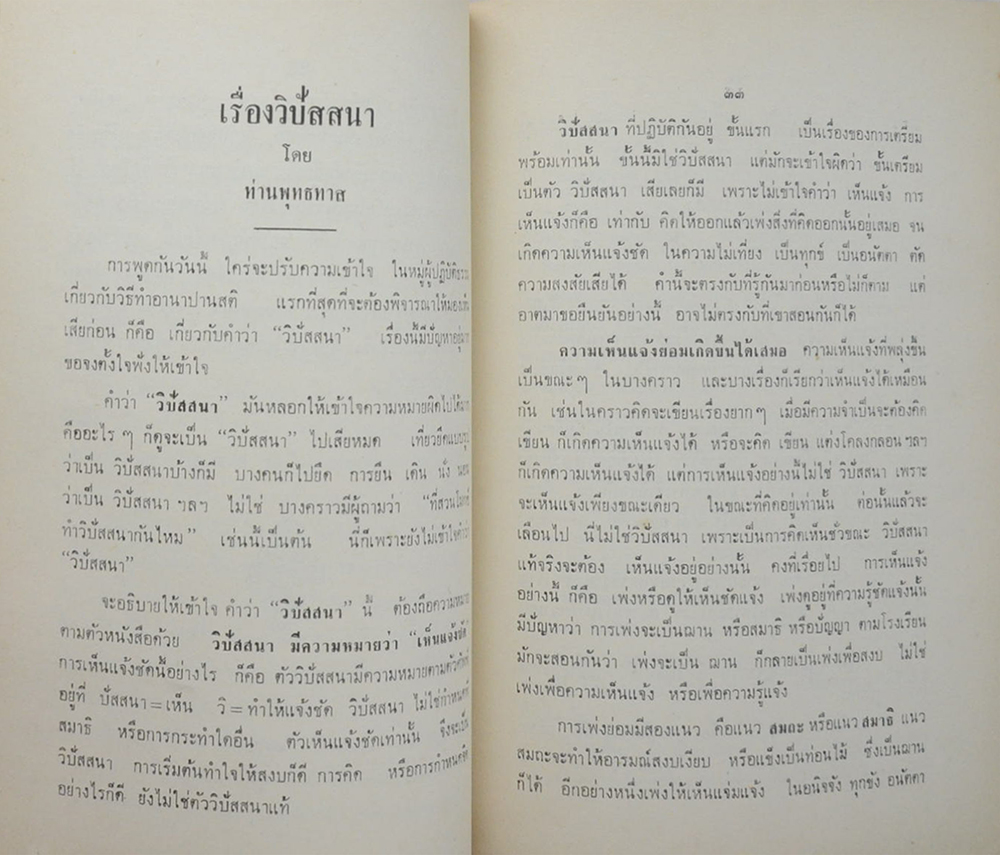 เรื่องวิปัสสนา
โดย
ท่านพุทธทาส
การพูดกันวันนี้ ใคร่จะปรับความเข้าใจ ในหมู่ผู้ปฏิบัติธรรม
เกี่ยวกับวิธีทำอานาปานสติ แรกที่สุดที่จะต้องพิจารณาให้มอง
เสียก่อน ก็คือ เกี่ยวกับคำว่า “วิปัสสนา” เรื่องนี้มีปัญหาอยู่
ขอจงตั้งใจฟังให้เข้าใจ
คำว่า “วิปัสสนา” มันหลอกให้เข้าใจความหมายผิดไปได้
คืออะไร ๆ ก็ดูจะเป็น “วิปัสสนา” ไปเสียหมด เที่ยวยึด
ว่าเป็น วิปัสสนาบ้างก็มี บางคนก็ไปยึด การยืน เดิน นั่ง นอน
ว่าเป็น วิปัสสนา ฯลฯ ไม่ใช่ บางคราวมีผู้ถามว่า “ที่สวนโมกข์
ทำวิปัสสนากันไหม” เช่นนี้เป็นต้น นี่ก็เพราะยังไม่เข้าใจคำว่า
“วิปัสสนา”
จะอธิบายให้เข้าใจ คำว่า “วิปัสสนา” นี้ ต้องถือความหมาย
ตามตัวหนังสือด้วย วิปัสสนา มีความหมายว่า “เห็นแจ้งชัด”
การเห็นแจ้งชัดนี้อย่างไร ก็คือ ตัววิปัสสนามีความหมายตามตัวหนังสือ
อยู่ที่ ปัสสนา=เห็น วิ=ทำให้แจ้งชัด วิปัสสนา ไม่ใช่ทำ
สมาธิ หรือการกระทำใดอื่น ตัวเห็นแจ้งชัดเท่านั้น จึงจะเป็น
วิปัสสนา การเริ่มต้นทำใจให้สงบก็ดี การคิด หรือการกำหนด
อย่างไรก็ดี ยังไม่ใช่ตัววิปัสสนาแท้
๓๓
วิปัสสนา ที่ปฏิบัติกันอยู่ ขั้นแรก เป็นเรื่องของการเตรียม
พร้อมเท่านั้น ขั้นนี้มิใช่วิปัสสนา แต่มักจะเข้าใจผิดว่า ขั้นเตรียม
เป็นตัว วิปัสสนา เสียเลยก็มี เพราะไม่เข้าใจคำว่า เห็นแจ้ง การ
เห็นแจ้งก็คือ เท่ากับ คิดให้ออกแล้วเพ่งสิ่งที่คิดออกนั้นอยู่เสมอ จน
เกิดความเห็นแจ้งชัด ในความไม่เที่ยง เป็นทุกข์ เป็นอนัตตา ตัด
ความสงสัยเสียได้ คำนี้จะตรงกับที่รู้กันมาก่อนหรือไม่ก็ตาม แต่
อาตมาขอยืนยันอย่างนี้ อาจไม่ตรงกับที่เขาสอนกันก็ได้
ความเห็นแจ้งย่อมเกิดขึ้นได้เสมอ ความเห็นแจ้งที่พลุ่งขึ้น
เป็นขณะๆ ในบางคราว และบางเรื่องก็เรียกว่าเห็นแจ้งได้เหมือน
กัน เช่นในคราวคิดจะเขียนเรื่องยากๆ เมื่อมีความจำเป็นจะต้องคิด
เขียน ก็เกิดความเห็นแจ้งได้ หรือจะคิด เขียน แต่งโคลงกลอน ฯลฯ
ก็เกิดความเห็นแจ้งได้ แต่การเห็นแจ้งอย่างนี้ไม่ใช่ วิปัสสนา เพราะ
จะเห็นแจ้งเพียงขณะเดียว ในขณะที่คิดอยู่เท่านั้น ต่อนั้นแล้วจะ
เลือนไป นี่ไม่ใช่วิปัสสนา เพราะเป็นการคิดเห็นชั่วขณะ วิปัสสนา
แท้จริงจะต้อง เห็นแจ้งอยู่อย่างนั้น คงที่เรื่อยไป การเห็นแจ้ง
อย่างนี้ ก็คือ เพ่งหรือดูให้เห็นชัดแจ้ง เพ่งดูอยู่ที่ความรู้ชัดแจ้งนั้น
มีปัญหาว่า การเพ่งจะเป็นฌาน หรือสมาธิ หรือปัญญา ตามโรงเรียน
มักจะสอนกันว่า เพ่งจะเป็น ฌาน ก็กลายเป็นเพ่งเพื่อสงบ ไม่ใช่
เพ่งเพื่อความเห็นแจ้ง หรือเพื่อความรู้แจ้ง
การเพ่งย่อมมีสองแนว คือแนว สมถะ หรือแนว สมาธิ แนว
สมถะจะทำให้อารมณ์สงบเงียบ หรือแข็งเป็นท่อนไม้ ซึ่งเป็นฌาน
ก็ได้ อีกอย่างหนึ่งเพ่งให้เห็นแจ่มแจ้ง ในอนิจจัง ทุกขัง อนัตตา